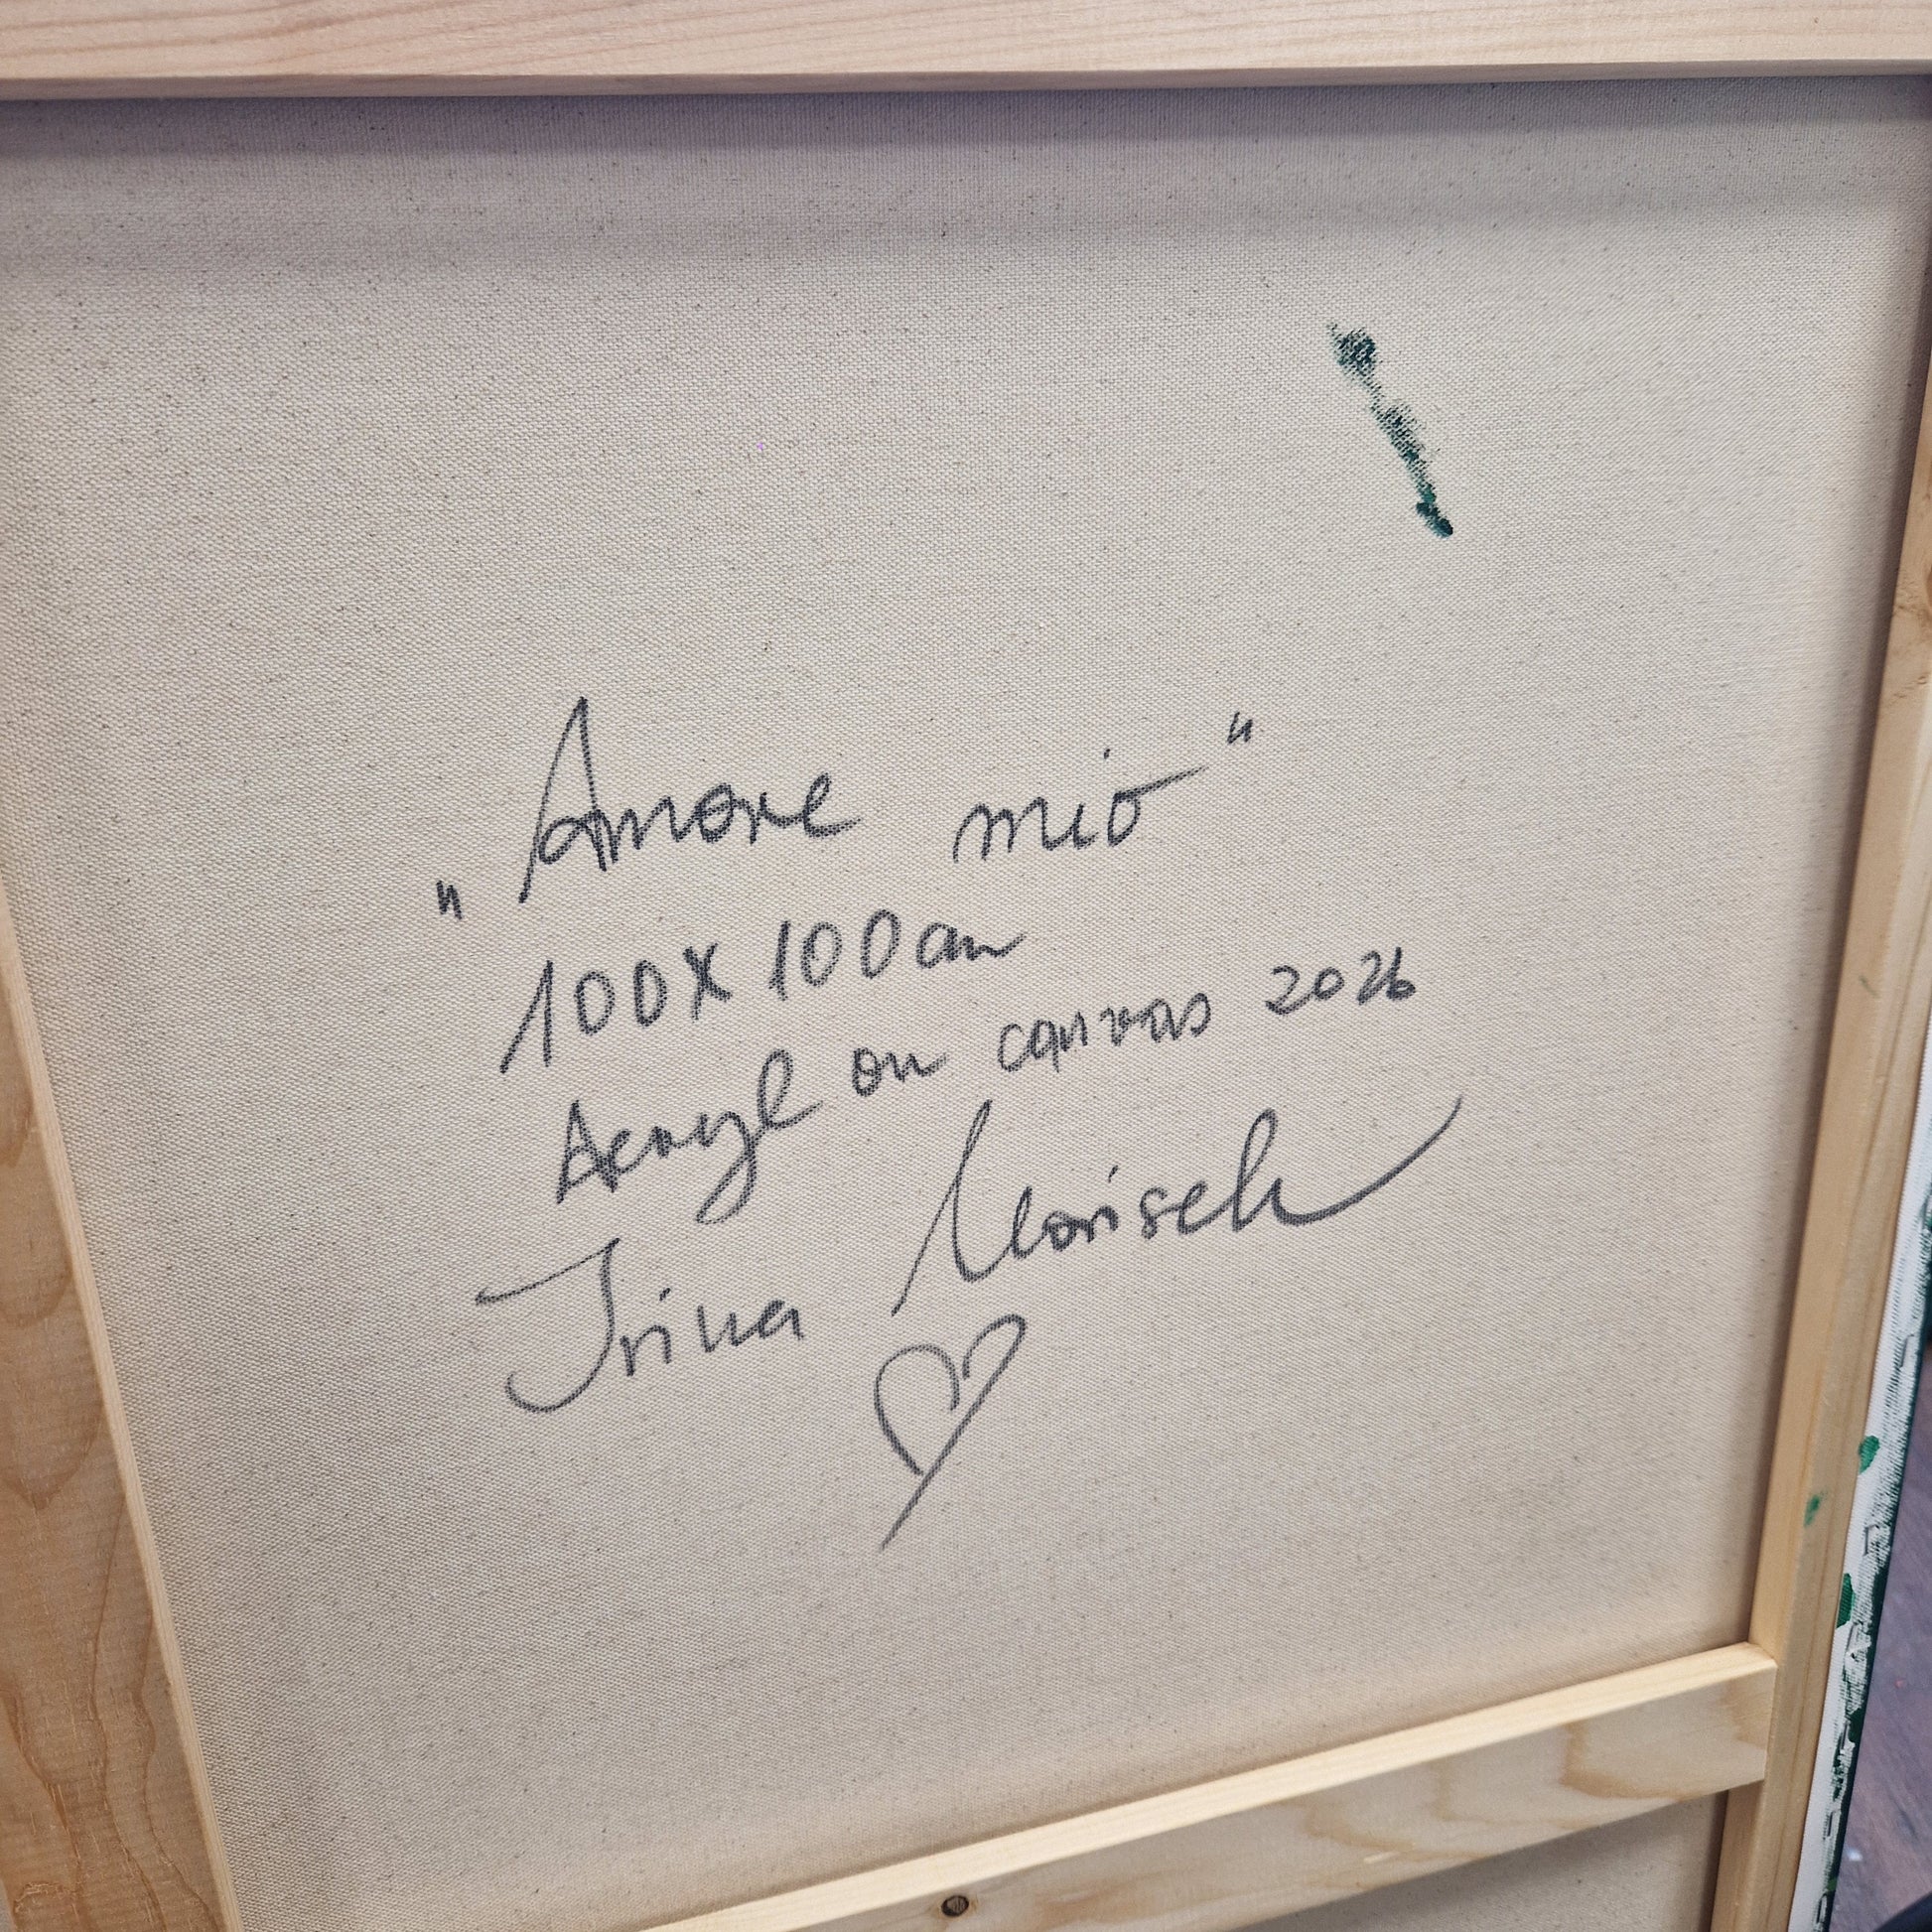 „Amore mio“
100x100cm
Acryl on canvas 2026
Irina